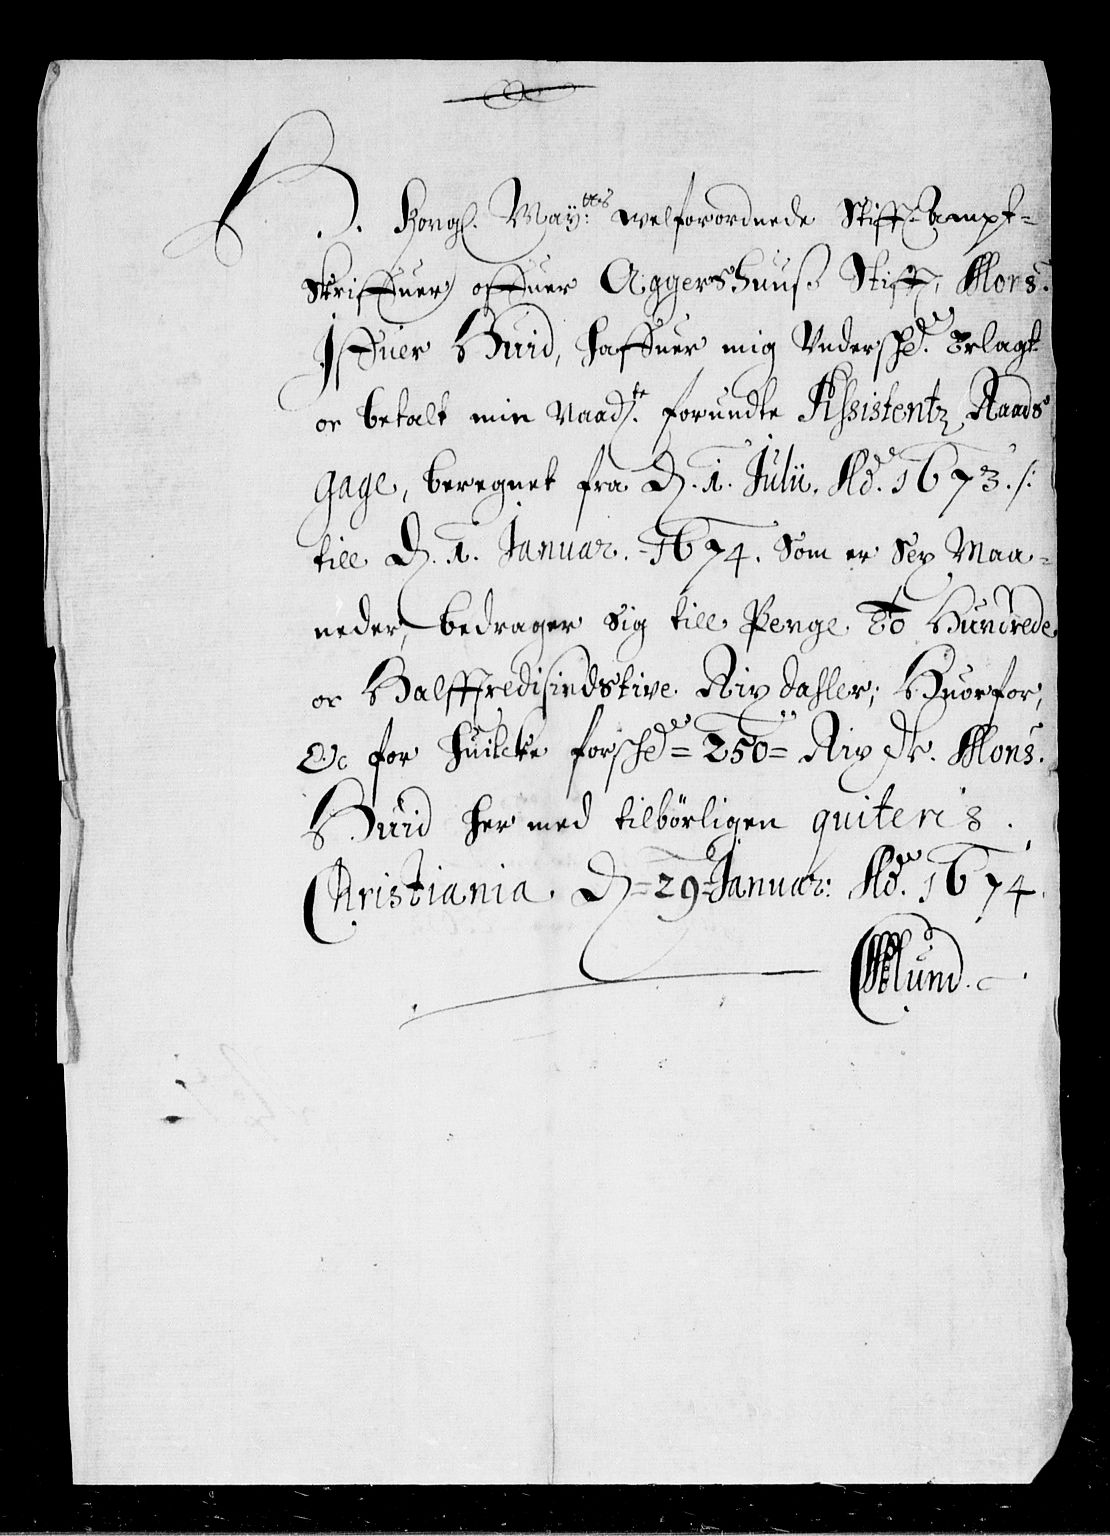 H. Kongl. May:ttes welforordnede Stiffts ampt-
skriffuer offuer Aggershuuß Stifft, Mons.
Iffuer Huid, haffuer mig Undersche. Erlagt
oc betalt min Naadste. forundte Assistentz Raads
gage, beregnet fra D. 1. Julii. Ao. 1673. /:
till D. 1. Januar. 1674. Som er Sex Maa-
neder, bedrager sig till Penge To Hundrede
oc Halfftredisindstive Rix dahler; Huorfor,
oc for huilcke forsche = 250 = Rix dr. Mons.
Huid her med tilbørligen quiteris.
Christiania. D = 29 = Januar: Ao. 1674.